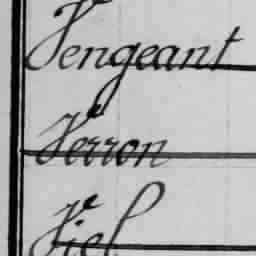 Vengeant
Verron
Viel